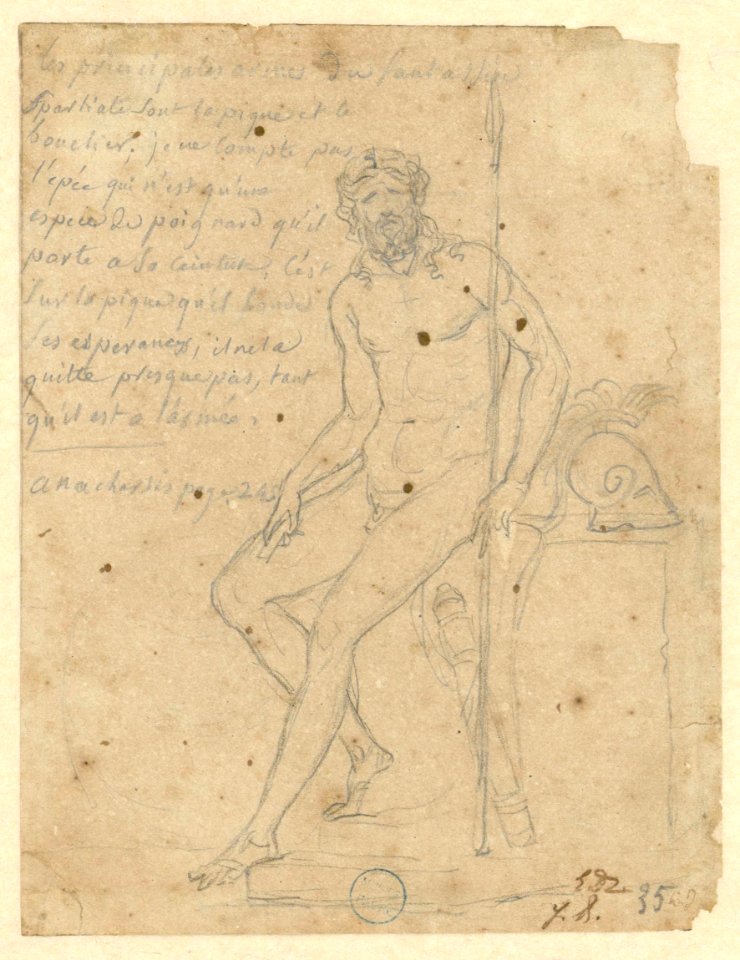 les principales armes du fantassin
Spartiate sont la pique et le
bouclier. je ne compte pas
l'épée qui n'est qu'une
espece de poignard qu'il
porte a sa ceinture, C'est
sur la pique qu'il fonde
ses esperances, il ne la
quitte presque pas, tant
qu'il est a l'armée.
anacharsis page 24
35